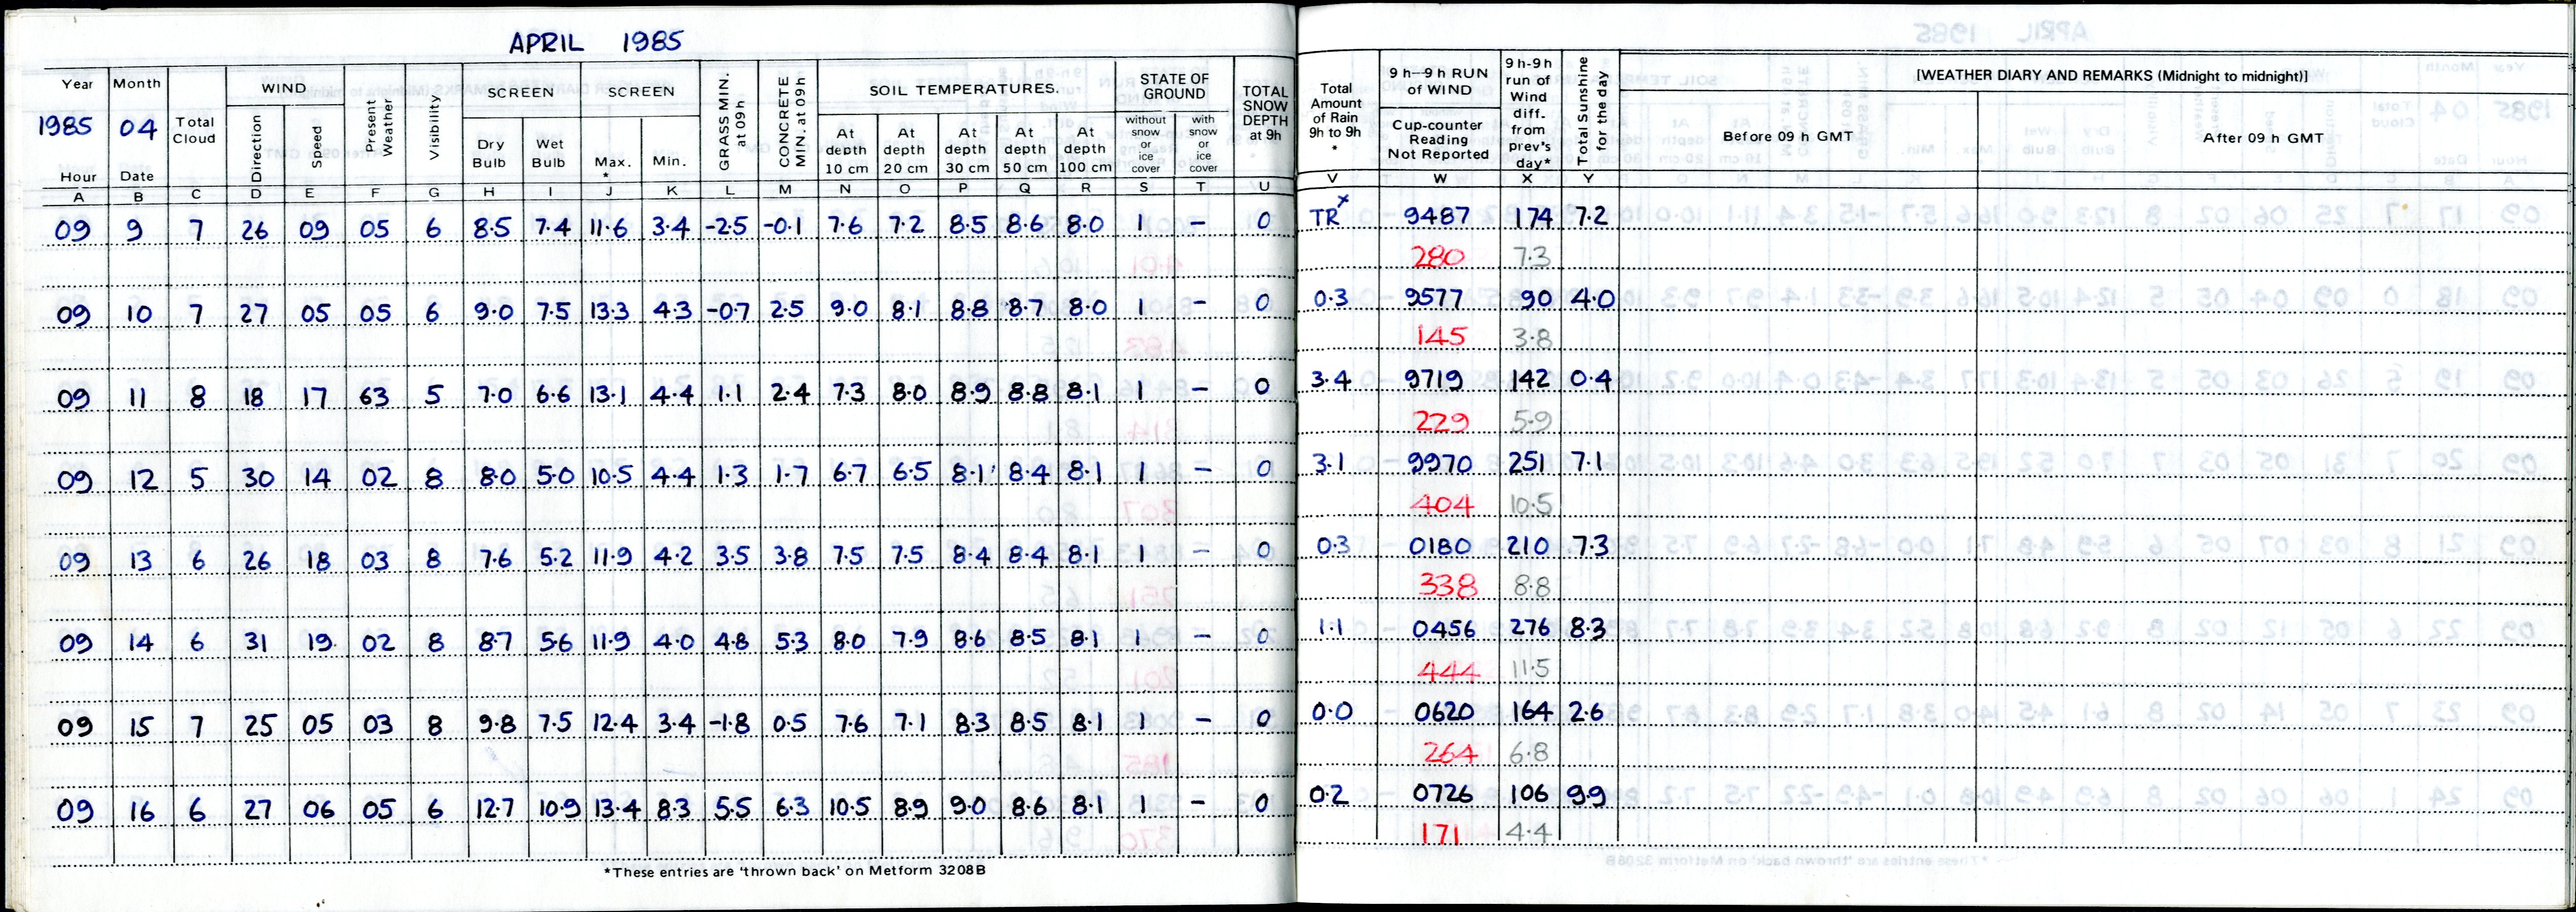 APRIL 1985
Year Month Total Cloud WIND Present Weather Visibility SCREEN SCREEN GRASS MIN. at 09h CONCRETE MIN. at 09h SOIL TEMPERATURES. STATE OF GROUND TOTAL SNOW DEPTH at 9h Total Amount of Rain 9h to 9h * 9 h–9 h RUN of WIND 9 h-9h run of Wind diff. from prev's day* Total Sunshine for the day [WEATHER DIARY AND REMARKS (Midnight to midnight)]
1985 04 Direction Speed Dry Bulb Wet Bulb Max. * Min. At depth 10 cm At depth 20 cm At depth 30 cm At depth 50 cm At depth 100 cm without snow or ice cover with snow or ice cover Cup-counter Reading Not Reported Before 09 h GMT After 09 h GMT
Hour Date
A B C D E F G H I J K L M N O P Q R S T U V W X Y
09 9 7 26 09 05 6 8.5 7.4 11.6 3.4 -2.5 -0.1 7.6 7.2 8.5 8.6 8.0 1 – 0 TRx 9487 174 7.2
280 7.3
09 10 7 27 05 05 6 9.0 7.5 13.3 4.3 -0.7 2.5 9.0 8.1 8.8 8.7 8.0 1 – 0 0.3 9577 90 4.0
145 3.8
09 11 8 18 17 63 5 7.0 6.6 13.1 4.4 1.1 2.4 7.3 8.0 8.9 8.8 8.1 1 – 0 3.4 9719 142 0.4
229 5.9
09 12 5 30 14 02 8 8.0 5.0 10.5 4.4 1.3 1.7 6.7 6.5 8.1 8.4 8.1 1 – 0 3.1 9970 251 7.1
404 10.5
09 13 6 26 18 03 8 7.6 5.2 11.9 4.2 3.5 3.8 7.5 7.5 8.4 8.4 8.1 1 – 0 0.3 0180 210 7.3
338 8.8
09 14 6 31 19 02 8 8.7 5.6 11.9 4.0 4.8 5.3 8.0 7.9 8.6 8.5 8.1 1 – 0 1.1 0456 276 8.3
444 11.5
09 15 7 25 05 03 8 9.8 7.5 12.4 3.4 -1.8 0.5 7.6 7.1 8.3 8.5 8.1 1 – 0 0.0 0620 164 2.6
264 6.8
09 16 6 27 06 05 6 12.7 10.9 13.4 8.3 5.5 6.3 10.5 8.9 9.0 8.6 8.1 1 – 0 0.2 0726 106 9.9
171 4.4
*These entries are 'thrown back' on Metform 3208B